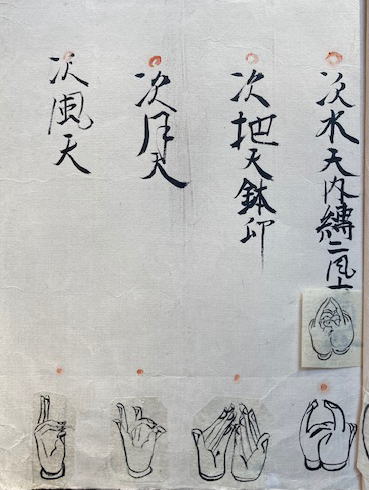 次水天内縛二風
次地天鉢印
次月天
次風天